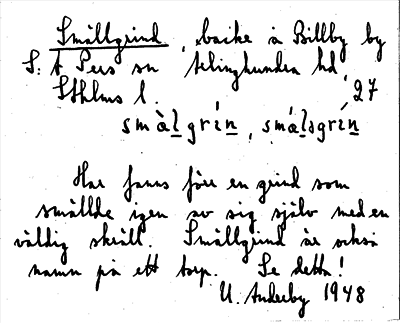 Smällgrind, backe i Billby by
S:t Pers sn Seminghundra hd,
Sthlms l. 27
smàlgrín, smálsgrín
Här fanns förr en grind som
smällde igen av sig själv med en
väldig skräll. Smällgrind är också
namn på ett torp. Se detta!
U. Anderby 1948